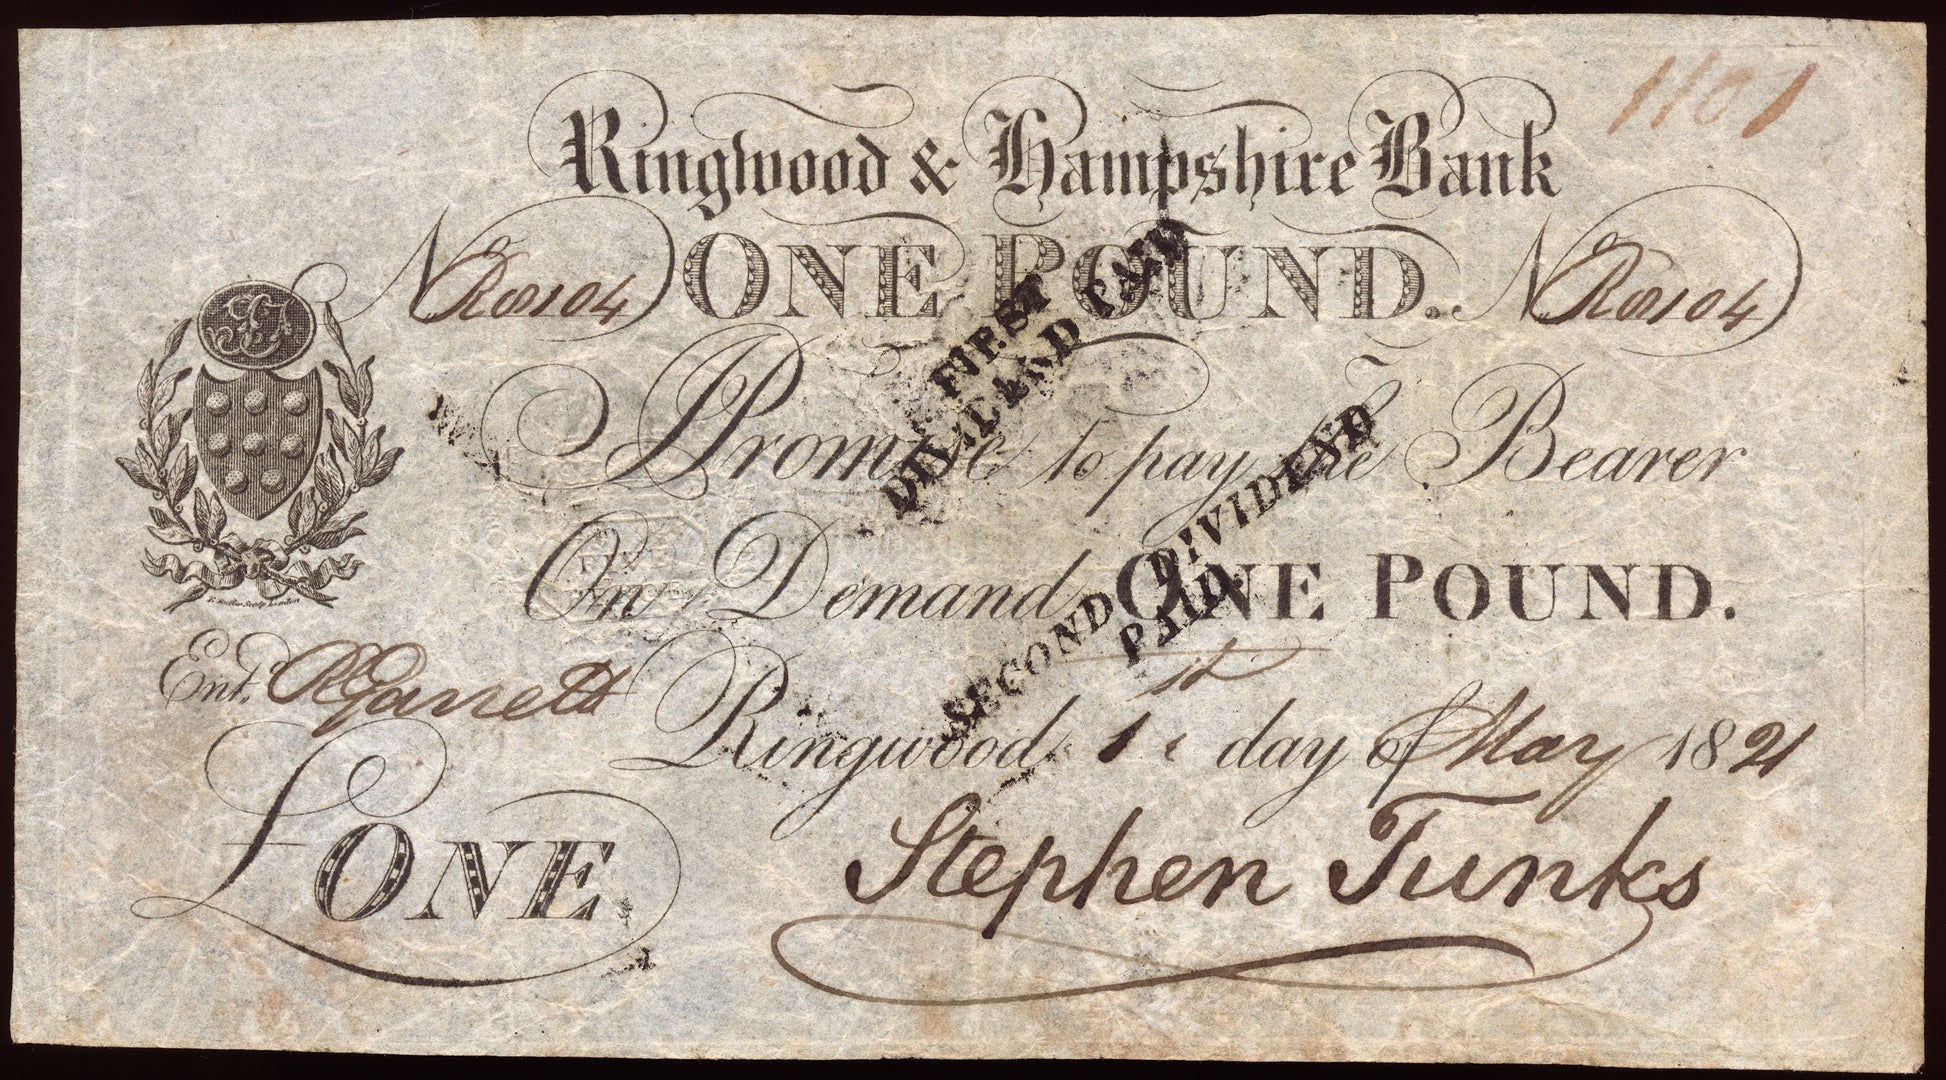 1101
Ringwood & Hampshire Bank
No R8104 ONE POUND. No R8104
I Promise to pay the Bearer
On Demand ONE POUND.
Ent. R Garrett
Ringwood 1st day of May 1821
£ONE
Stephen Tunks
FIRST
DIVIDEND PAID
SECOND DIVIDEND
PAID